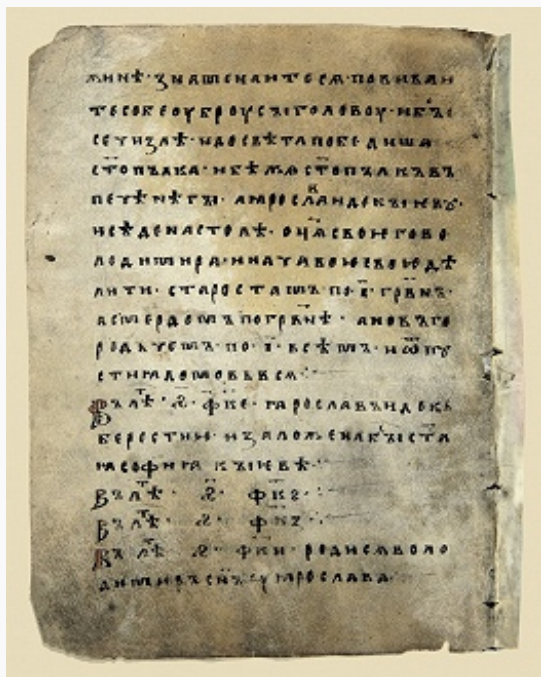 мнѣ · знаменаитесѧ · повиваи
те собе оуброусы головоу · и бы
сѧ сеци злѣ · и до свѣта победиша
ст҃опълка · и бѣжѧ ст҃опълкъ въ
пецѣнѣгы · а ꙗрославъ иде кыеву ·
и сѣде на столѣ · оц҃ѧ своѥго во
лодимира · и нача воѥ своѥ дѣ
лити · старостамъ · по · і҃ · грв҃нъ ·
а смердомъ по грв҃нѣ · а новъго
родьцемъ · по · і҃ · всѣмъ · и ѿпу
сти ꙗ домовь всѧ ·:
Въ лѣт · ҂ѕ҃ · ф҃ке · ꙗрославъ иде къ
берестию · и заложена бы ст҃а
ꙗ софиꙗ кыѥвѣ ·
Въ лѣт · ҂ѕ҃ · ф҃кѕ ·:
Въ лѣт · ҂ѕ҃ · ф҃кз ·:
Въ лѣт · ҂ѕ҃ · ф҃ки · родисѧ воло
димиръ сн҃ъ у ꙗрослава ·